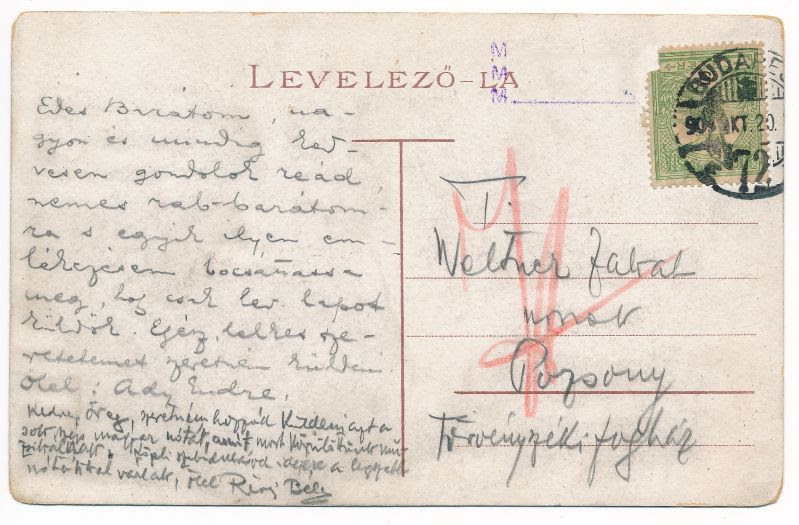 LEVELEZŐ-LA
M
M
M
BUDAPEST
OKT. 20.
72
Edes Barátom, na-
gyon és mindig ked-
vesen gondolok reád
nemes rab-barátom-
ra s egyik ilyen em-
lékezésem bocsáttassa
meg, hogy csak lev. lapot
küldök. Egész, lelkes sze-
retetemet szeretném küldeni
Ölel: Ady Endre,
Kedves öreg, szeretném hozzád küldeni azt a
sok szép magyar nótát, amit most
a legszebb
nótákkal várlak, ölel Révész Béla
T.
Weltner Jakab
urnak
Pozsony
Törvényszéki fogház